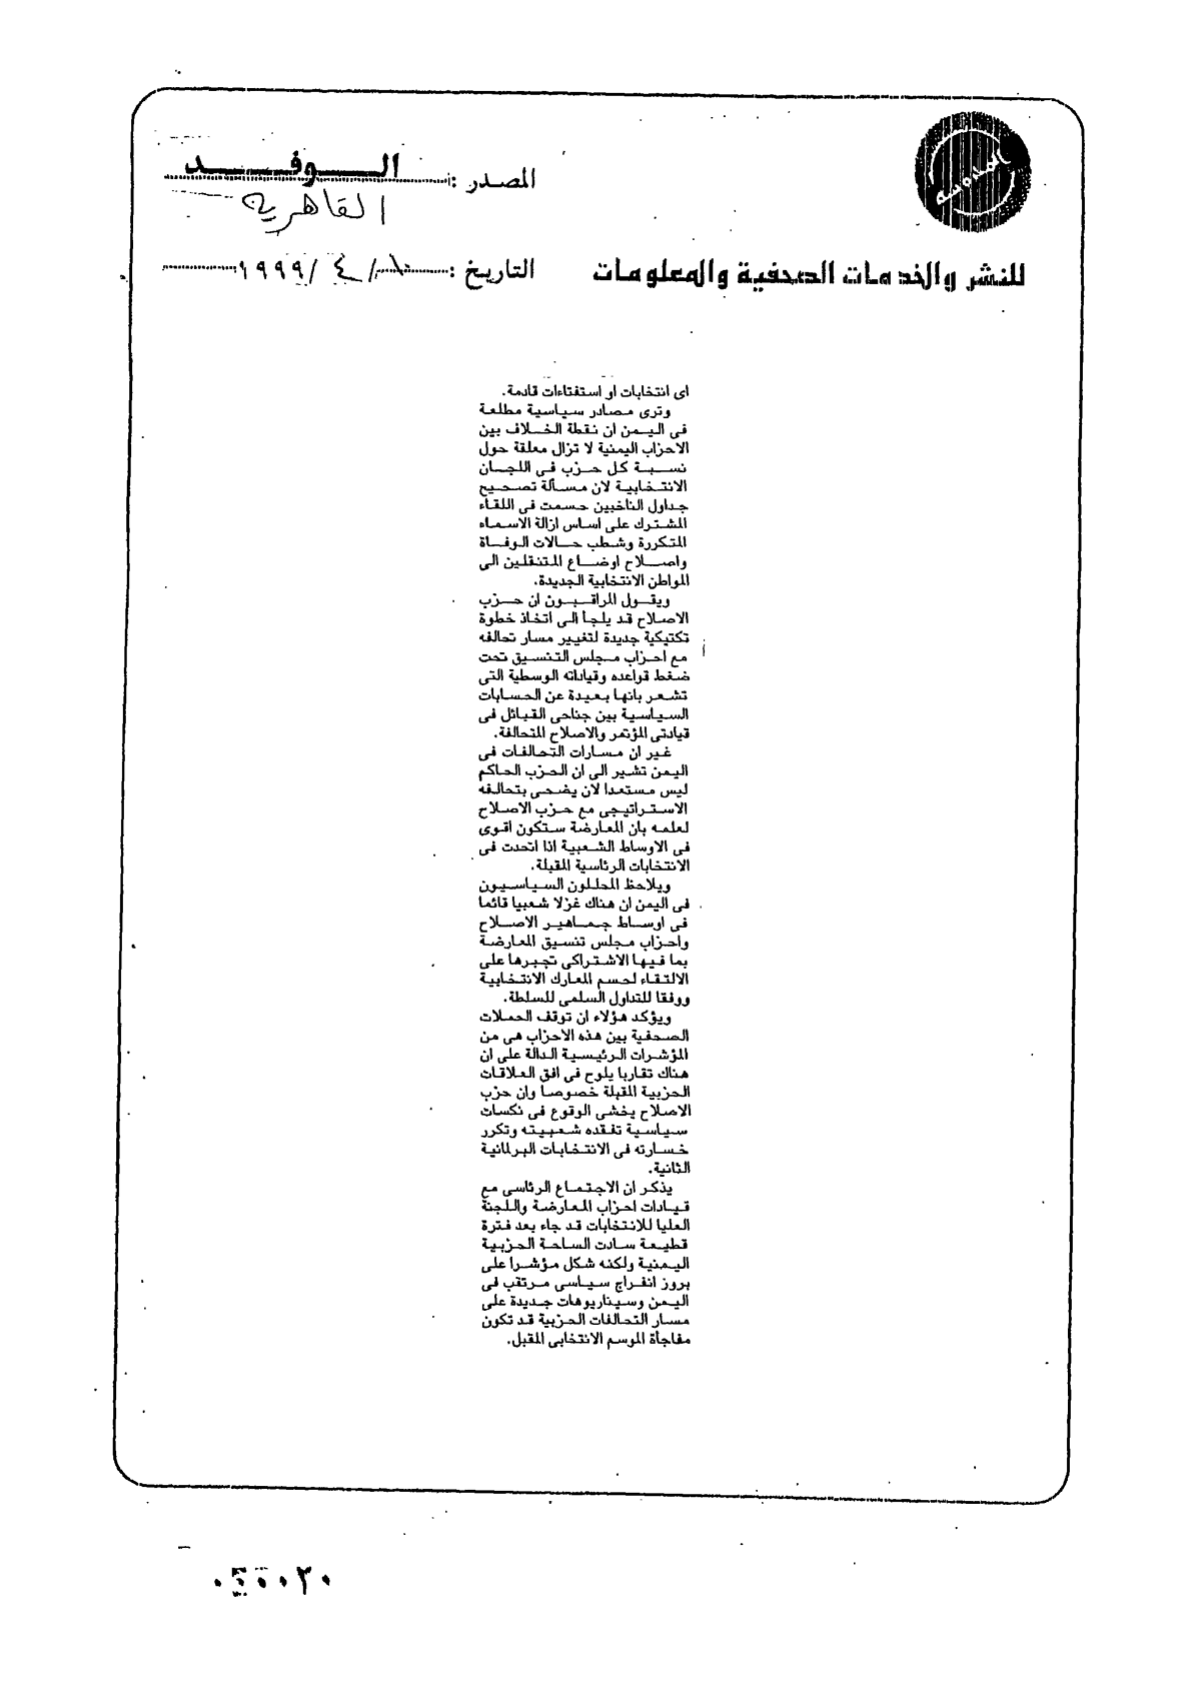 المصدر : الوفد
القاهرية
للنشر والخدمات الصحفية والمعلومات
التاريخ : ١٠/ ٤ /١٩٩٩
اى انتخابات او استفتاءات قادمة.
وترى مصادر سياسية مطلعة
فى اليمن ان نقطة الخلاف بين
الاحزاب اليمنية لا تزال معلقة حول
نسبة كل حزب فى اللجان
الانتخابية لان مسألة تصحيح
جداول الناخبين حسمت فى اللقاء
المشترك على اساس ازالة الاسماء
المتكررة وشطب حالات الوفاة
واصلاح اوضاع المتنقلين الى
المواطن الانتخابية الجديدة.
ويقول المراقبون ان حزب
الاصلاح قد يلجا الى اتخاذ خطوة
تكتيكية جديدة لتغيير مسار تحالفه
مع احزاب مجلس التنسيق تحت
ضغط قواعده وقياداته الوسطية التى
تشعر بانها بعيدة عن الحسابات
السياسية بين جناحى القبائل فى
قيادتى المؤتمر والاصلاح المتحالفة.
غير ان مسارات التحالفات فى
اليمن تشير الى ان الحزب الحاكم
ليس مستعدا لان يضحى بتحالفه
الاستراتيجى مع حزب الاصلاح
لعلمه بان المعارضة ستكون اقوى
فى الاوساط الشعبية اذا اتحدت فى
الانتخابات الرئاسية المقبلة.
ويلاحظ المحللون السياسيون
فى اليمن ان هناك غزلا شعبيا قائما
فى اوساط جماهير الاصلاح
واحزاب مجلس تنسيق المعارضة
بما فيها الاشتراكى تجبرها على
الالتقاء لحسم المعارك الانتخابية
ووفقا للتداول السلمى للسلطة.
ويؤكد هؤلاء ان توقف الحملات
الصحفية بين هذه الاحزاب هى من
المؤشرات الرئيسية الدالة على ان
هناك تقاربا يلوح فى افق العلاقات
الحزبية المقبلة خصوصا وان حزب
الاصلاح يخشى الوقوع فى نكسات
سياسية تفقده شعبيته وتكرر
خسارته فى الانتخابات البرلمانية
الثانية.
يذكر ان الاجتماع الرئاسى مع
قيادات احزاب المعارضة واللجنة
العليا للانتخابات قد جاء بعد فترة
قطيعة سادت الساحة الحزبية
اليمنية ولكنه شكل مؤشرا على
بروز انفراج سياسى مرتقب فى
اليمن وسيناريوهات جديدة على
مسار التحالفات الحزبية قد تكون
مفاجأة الموسم الانتخابى المقبل.